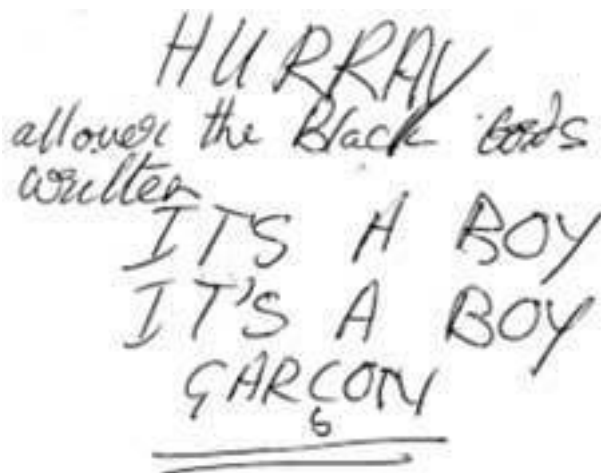 HURRAY
allover the Black Bords
written
ITS A BOY
IT'S A BOY
GARÇON